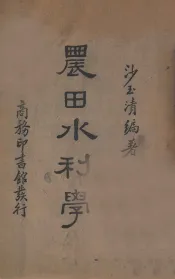 沙玉清編著
農田水利學
商務印書館發行